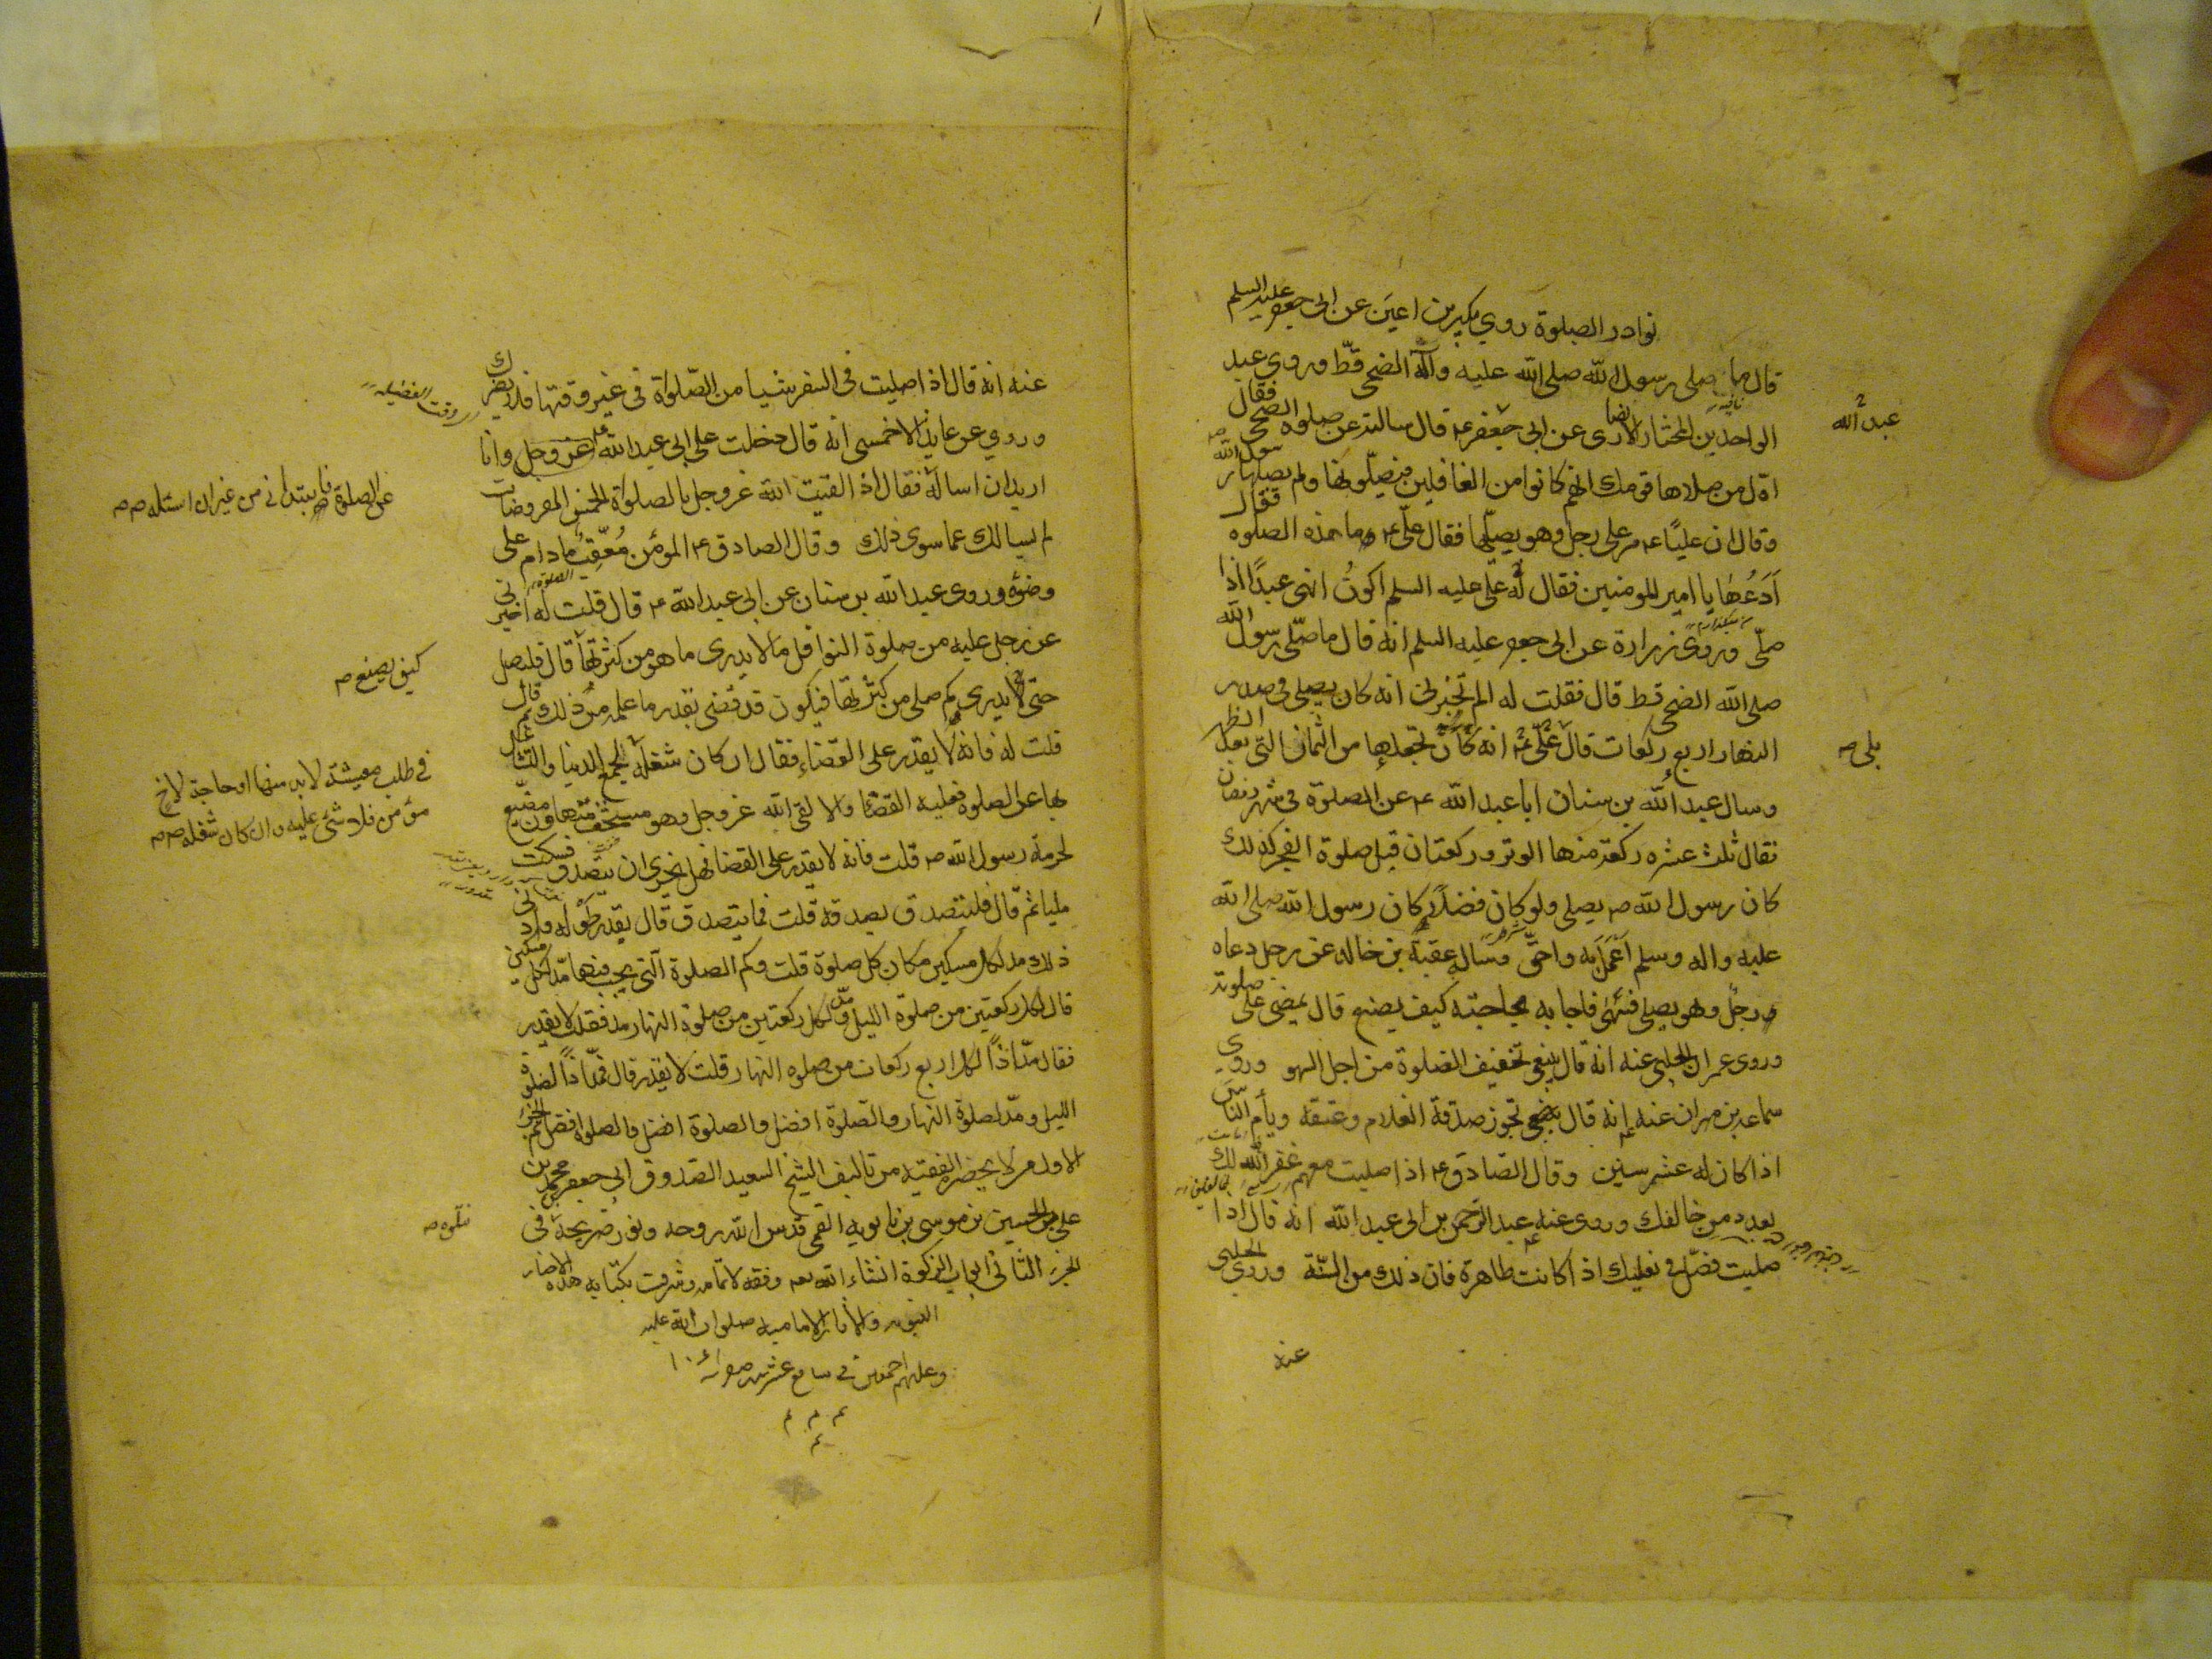 نوادر الصلوة روي بكير بن اعين عن ابى جعفر عليه السلم
قال ما صلى رسول الله صلى الله عليه وآله الضحى قطّ وروى عبد
الواحد بن المختار الانصارى عن ابى جعفر ع قال سالته عن صلوة الضحى فقال
اوّل من صلاها قومك انهم كانوا من الغافلين فيصلّونها ولم يصلها رسول الله
وقال ان عليًّا ع مر على رجل وهو يصلّيها فقال علّى ع ما هذه الصلوة فقال
اَدَعُها يا امير المومنين فقال له علّى عليه السلم اكونُ انهى عبدًا اذا
صلّى وروى زرارة عن ابى جعفر عليه السلم انه قال ما صلّى رسول الله
صلى الله الضحى قط قال فقلت له الم تخبرنى انه كان يصلى فى صدر
النهار اربع ركعات قال انه كان يجعلها من الثمان التى بعد الظهر
وسال عبد الله بن سنان ابا عبد الله ع عن الصلوة فى شهر رمضان
فقال ثلث عشره ركعة منها الوتر وركعتان قبل صلوة الفجر كذلك
كان رسول الله ص يصلى ولو كان فضلاً كان رسول الله صلى الله
عليه واله وسلم اَعْمَلَ به واحقّ وسال عقبة بن خالد عن رجل دعاه
رجلٌ وهو يصلى فسَهَى فاجابه بحاجته كيف يصنع قال يمضى على صلوته
وروى عمران الحلبى عنه انه قال ينبغى تخفيف الصلوة من اجل السهو وروى
سماعه بن مهران عنه انه قال تجوز صدقة الغلام وعتقه ويأم الناس
اذا كان له عشر سنين وقال الصّادق ع اذا صليت معهم غفر الله لك
بعدد من خالفك وروى عنه عبد الرّحمن بن ابى عبد الله انه قال اذا
صليت فصلّ فى نعليك اذا كانت طاهرة فان ذلك من السّنّة وروى الحلبى
عنه
عبد الله
بلى ص
عنه انه قال اذا صليت فى السفر شيا من الصّلوٰة فى غير وقتها فلا يضرك
وروي عن عايذ الاخمسى انه قال دخلت على ابى عبد الله ع وانا
اريد ان اساله فقال اذا لقيت الله عز وجل بالصلوٰة الخمس المفروضات
لم يسالك عما سوى ذلك وقال الصادق ع المومن مُعقِّب ما دام على
وضوء وروى عبد الله بن سنان عن ابى عبد الله ع قال قلت له اخبرنى
عن رجل عليه من صلوة النوافل ما لا يدرى ما هو من كثرتها قال فليصل
حتى لا يدرى كم صلى من كثرتها فيكون قد قضى بقدر ما علمه من ذلك ثم قال
قلت له فانه لا يقدر على القضاء فقال ان كان شغله لجمع الدنيا والتشاغل
بها عن الصلوة فعليه القضا والا لقى الله عز وجل وهو مستخف متهاون مضيّع
لحرمة رسول الله ص قلت فانه لا يقدر على القضا فهل يجزى ان يتصدق فسكت
مليا ثم قال فليتصدق بصدقه قلت فما يتصدق قال بقدر طَوْله وادنى
ذلك مد لكل مسكين مكان كل صلوة قلت وكم الصلوة الّتى يجب فيها مدّ لكل مسكين
قال لكل ركعتين من صلوة الليل مدّ ولكل ركعتين من صلوة النهار مد فقلت لا يقدر
فقال مدّ اذًا لكل اربع ركعات من صلوه النهار قلت لا يقدر قال فمدّ اذًا لصلوة
الليل ومدّ لصلوة النهار والصلوة افضل والصلوة افضل والصلوة افضل تم الجزء
الاول من لا يحضره الفقيه من تاليف الشيخ السعيد الصدوق ابى جعفر محمد بن
على بن الحسين بن موسى بن بابويه القمى قدس الله روحه ونور ضريحه فى
الجزء الثانى ابواب الزكوة انشاء الله تعه وفقه لاتمامه وشرفت بكتابه هذه الاخبار
النبويه والاثار الاماميه صلوات الله عليه
وعليهم اجمعين فى سابع عشر شهر صفر
وقت الفضيله
عن الصلوة فابتدانى من غير ان اسئله ص
كيف يصنع ص
فى طلب معيشة لا بد منها او حاجة لاخ
مؤمن فلا شئ عليه وان كان شغله ص
يتلوه ص